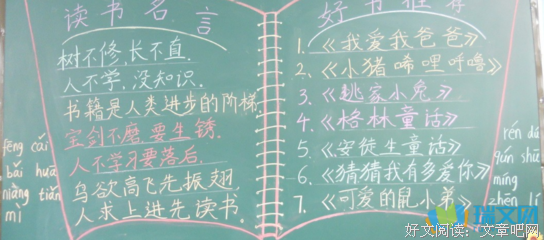 读书名言
树不修,长不直.
人不学,没知识.
书籍是人类进步的阶梯.
宝剑不磨要生锈.
人不学习要落后.
鸟欲高飞先振翅
人求上进先读书.
fēng cǎi
bǎi huā
niàng tián
mì
好书推荐
1.《我爱我爸爸》
2.《小猪唏哩呼噜》
3.《逃家小兔》
4.《格林童话》
5.《安徒生童话》
6.《猜猜我有多爱你》
7.《可爱的鼠小弟》
rén dú
qún shū
míng
zhēn lǐ
瑞文网
好文阅读: 文章吧网